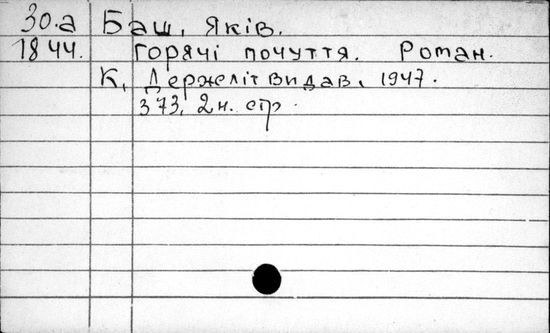 30.а Баш, Яків.
1844. Гарячі почуття. Роман.
К, Держлітвидав, 1947.
373, 2 н. стр.